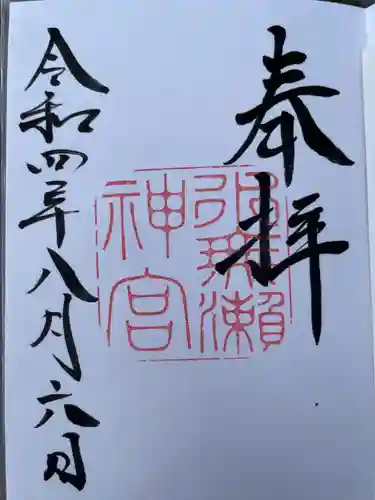 奉拝
水無瀬
神宮
令和四年八月六日